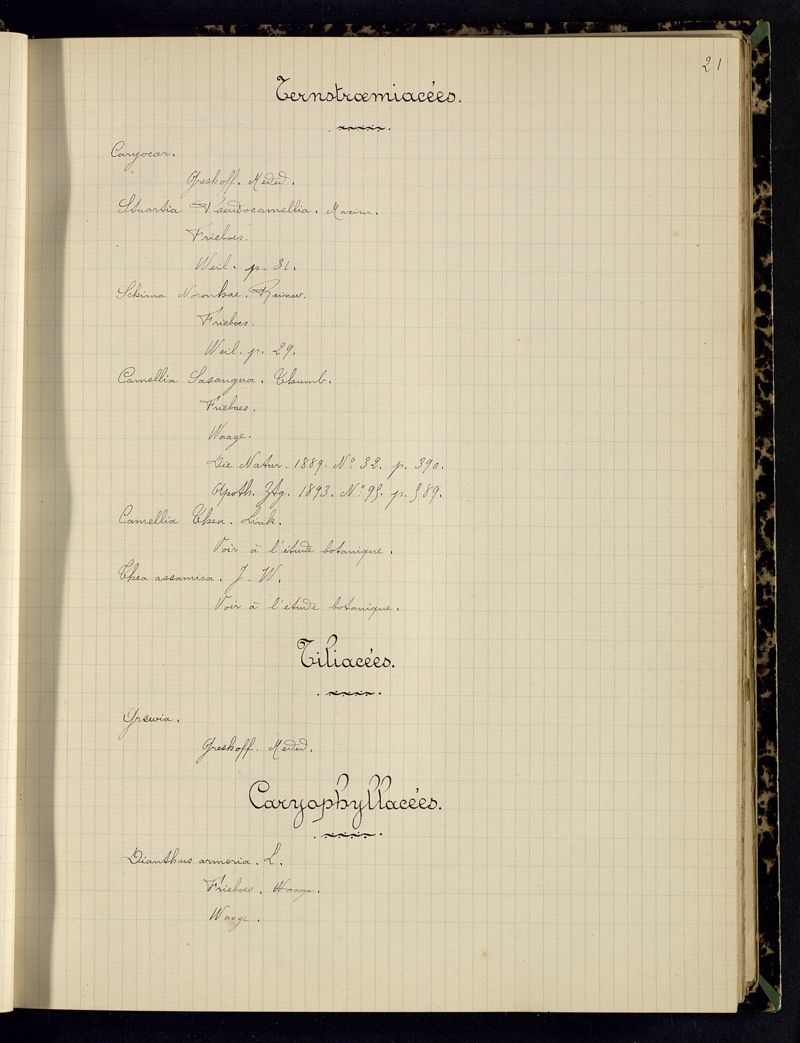 21
Ternstrœmiacées.
Caryocar.
Greshoff. Meded.
Stuartia Pseudocamellia. Maxim.
Frieboes.
Weil. p. 31.
Schima Noronhae. Reinw.
Frieboes.
Weil. p. 29.
Camellia Sasanqua. Thumb.
Frieboes.
Waage.
Die Natur. 1889. Nº 32. p. 390.
Apoth. Ztg. 1893. Nº 95. p. 589.
Camellia Thea. Link.
Voir à l'étude botanique.
Thea assamica. J. W.
Voir à l'étude botanique.
Tiliacées.
Grewia.
Greshoff. Meded.
Caryophyllacées.
Dianthus armeria. L.
Frieboes. Waage.
Waage.